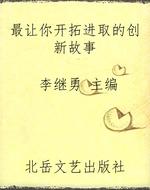 最让你开拓进取的创
新故事
李继勇 主编
北岳文艺出版社